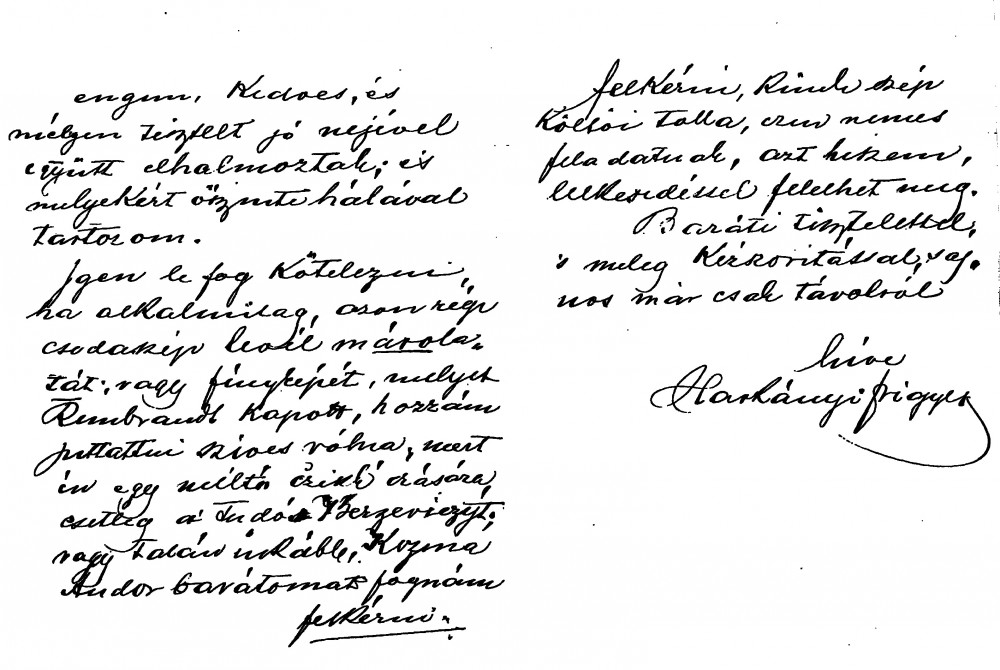 engem, Kedves, és
mélyen tisztelt jó nejével
együtt elhalmoztak; és
melyekért őszinte hálával
tartozom.
Igen le fog kötelezni,
ha alkalmilag, azon régi
csodakép levél másola-
tát; vagy fényképét, melyet
Rembrandt kapott, hozzám
juttattni szives vólna, mert
én egy méltó czikk irására,
esetleg a' Tudós Berzeviczyt;
vagy talán inkább, Kozma
Andor barátomat fognám
felkérni.
felkérni, Kinek szép
költői tolla, ezen nemes
feladatnak, azt hiszem,
lelkesedéssel felelhet meg.
Baráti tisztelettel,
's meleg Kézszoritással, saj-
nos már csak távolról
híve
Harkányi Frigyes